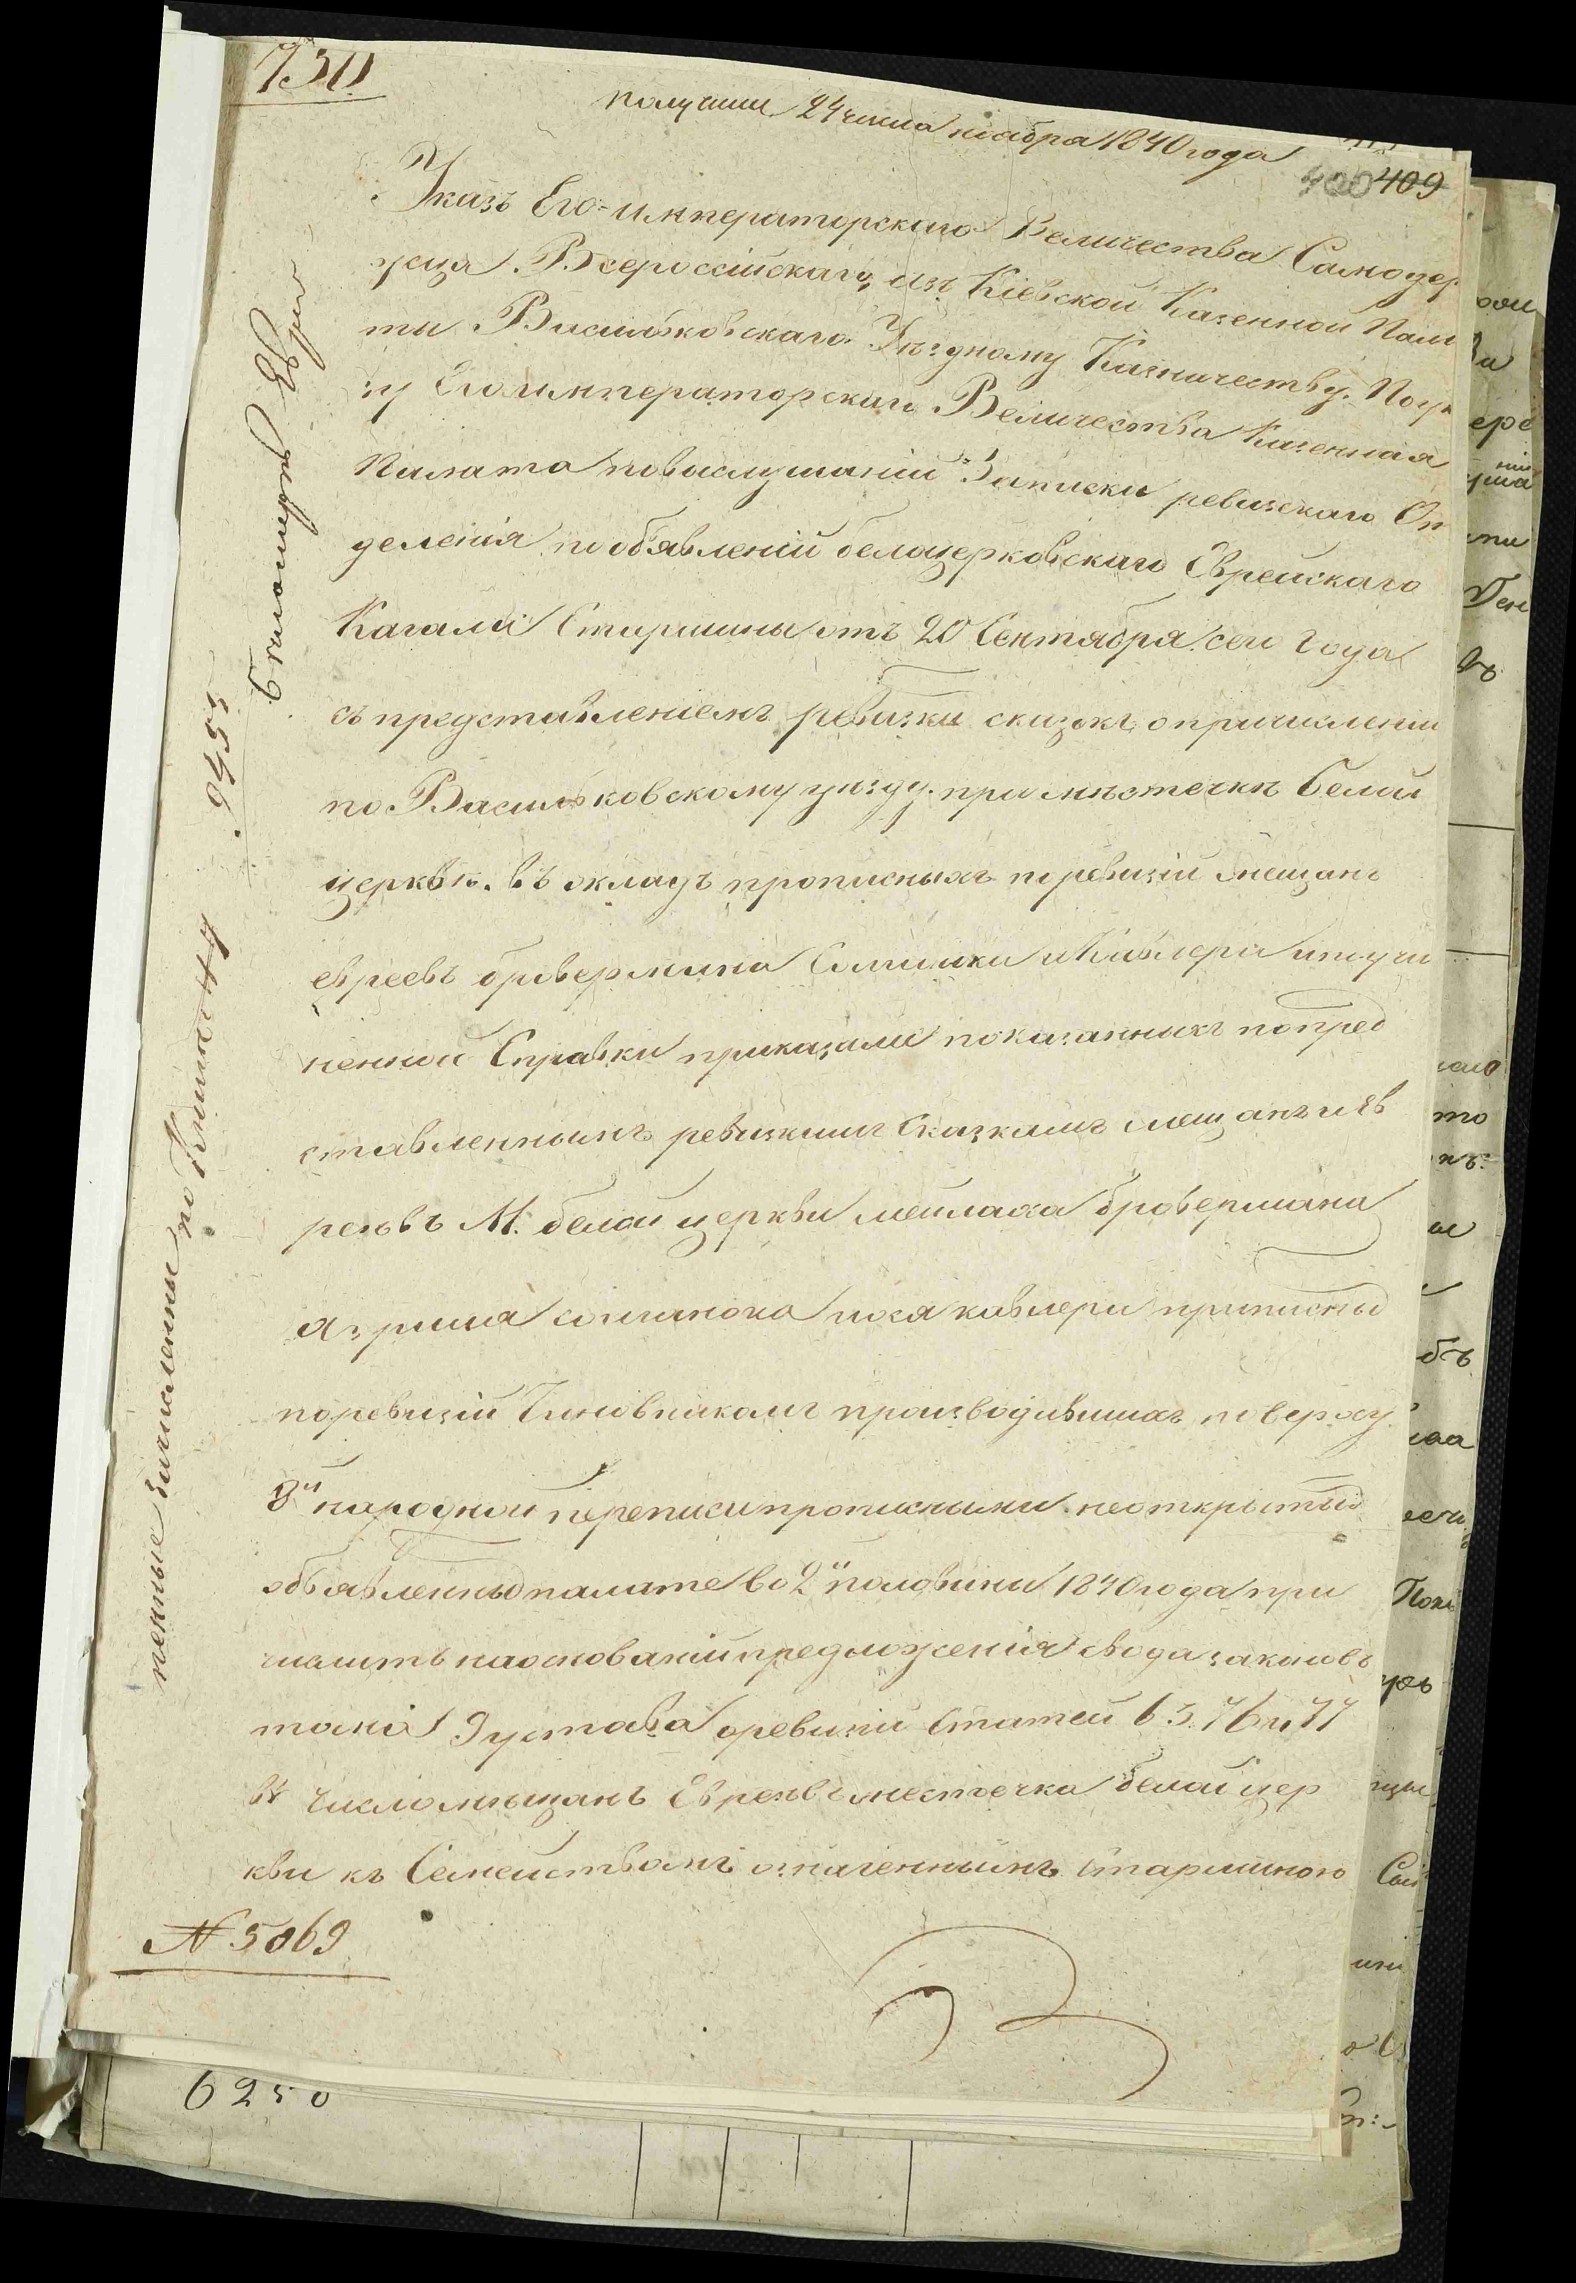 730
получени 24 числа ноября 1840 года
400 409
Указъ Его Императорскаго Величества Самодер
жца Всероссійскаго, изъ Кіевской Казенной Пала
ты Васильковскаго Уѣздному Казначеству. Поук
зу Его Императорскаго Величества Казенная
Палата повыслушаніи Записки ревизскаго От
деленія пообявленій белоцерковскаго Еврейскаго
Кагала Старшины отъ 20 Сентября сего года
съ представленіемъ ревизки сказокъ, о причисленіи
по Васильковскому уѣзду при мѣстечкѣ Белой
церкви. въ окладъ прописныхъ поревизіи мещанъ
евреевъ бровермана и Кавлера и поучи
ненной Справки приказали показанныхъ попред
ставленнымъ ревизкимъ Сказкамъ мещанъ и ев
реевъ М. белой церкви мейлаха бровермана
кавлера
поревизіи Чиновникамъ производившихъ поверку
8й народной переписи прописными неоткрытый
объявленны палате во 2й половины 1840 года при
числить наоснованіи предложенія свода законовъ
тома 9 устава оревизіи Статей 63. 76 и 77
въ число мещанъ Евреевъ местечка белой цер
кви къ Семействамъ означеннымъ Старшиною
№ 5069
Белоцерков. Евреи
9455
пенные Зачисленны по Книгѣ 47
6250